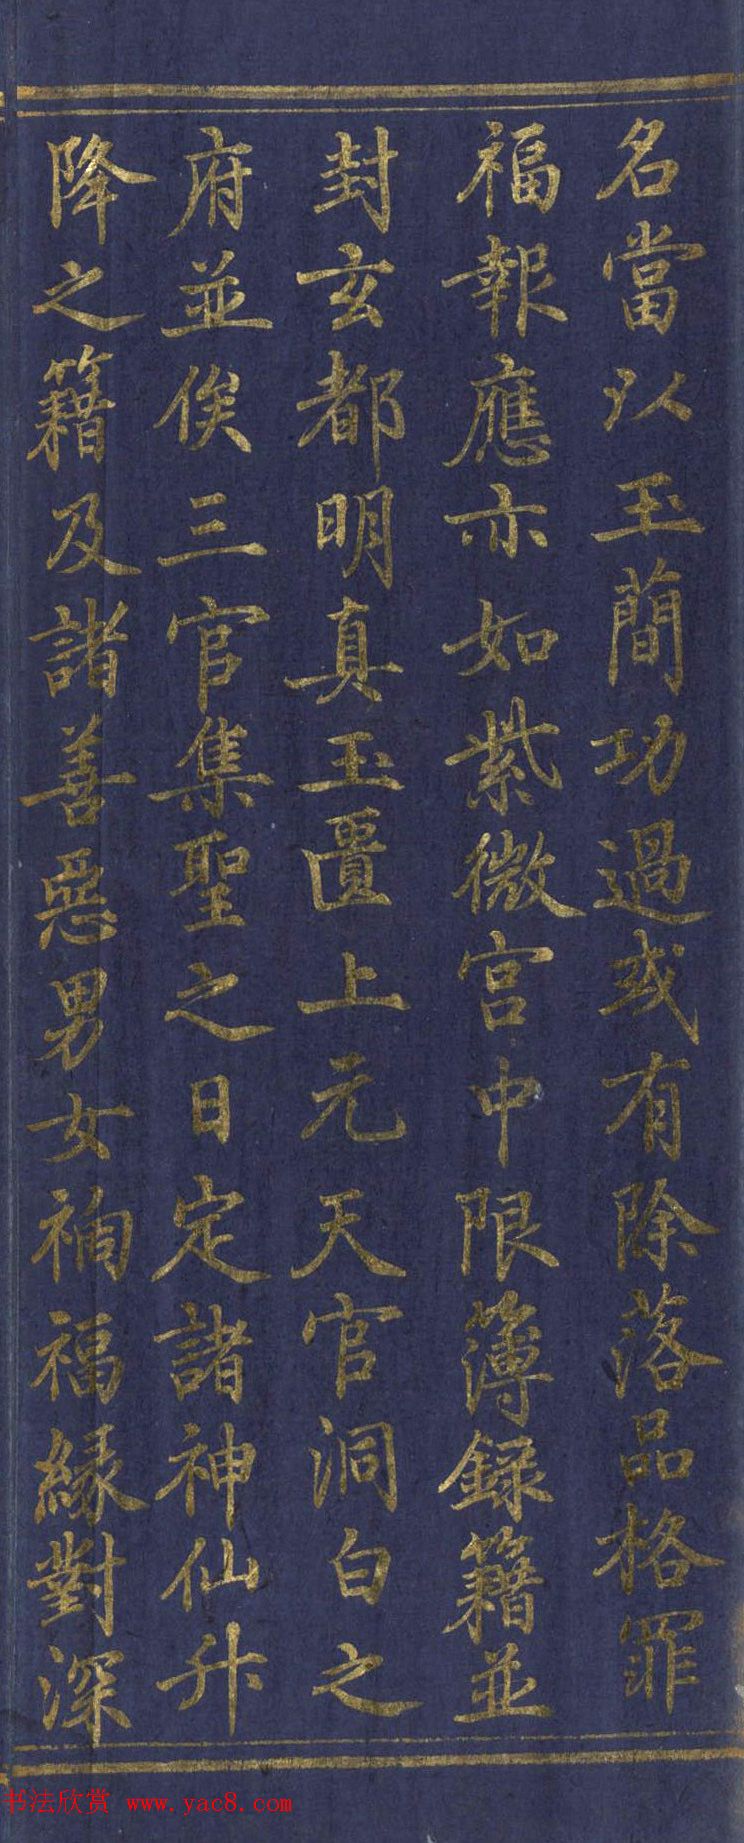 名當以玉蕳功過或有除落品格罪
福報應亦如紫微宮中限簿録籍並
封玄都明真玉匱上元天官洞白之
府並俟三官集聖之日定諸神仙升
降之籍及諸善惡男女禍福緣對深
书法欣赏 www.yac8.com